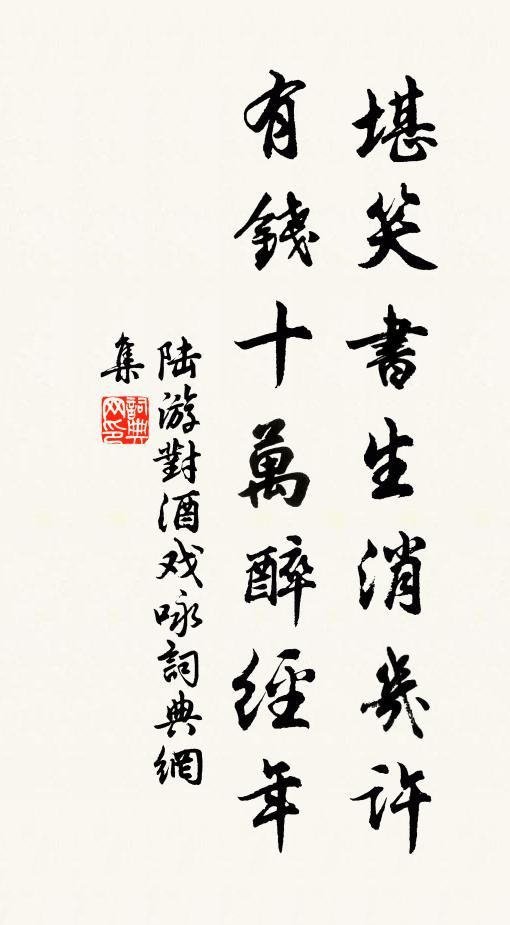 堪笑書生消幾許
有錢十萬醉經年
陆游對酒戏咏詞典網
集
詞典
网印